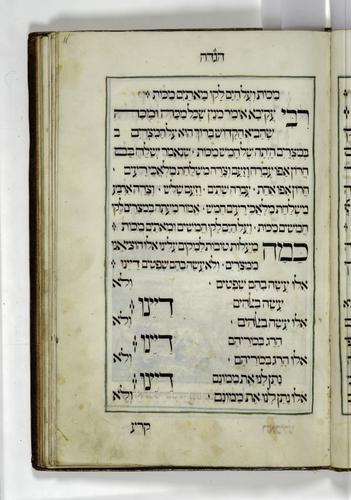 הגדה
מכות ועל הים לקו מאתים מכות
רבי עקיבא אומר מנין שכל מכה ומכה
שהביא הקדוש ברוך הוא על המצרים
במצרים היתה של חמש מכות שנאמר ישלח בם
חרון אפו עברה וזעם וצרה משלחת מלאכי רעים
חרון אפו אחת עברה שתים וזעם שלש וצרה ארבע
משלחת מלאכי רעים חמש אמור מעתה במצרים לקו
חמשים מכות ועל הים חמשים ומאתים מכות
כמה מעלות טובות למקום עלינו אלו הוציאנו
ממצרים ולא עשה בהם שפטים דיינו
אלו עשה בהם שפטים ולא
עשה באלהים דיינו
אלו עשה באלהים ולא
הרג בכוריהם דיינו
אלו הרג בכוריהם ולא
נתן לנו את ממונם דיינו
אלו נתן לנו את ממונם ולא
קרע